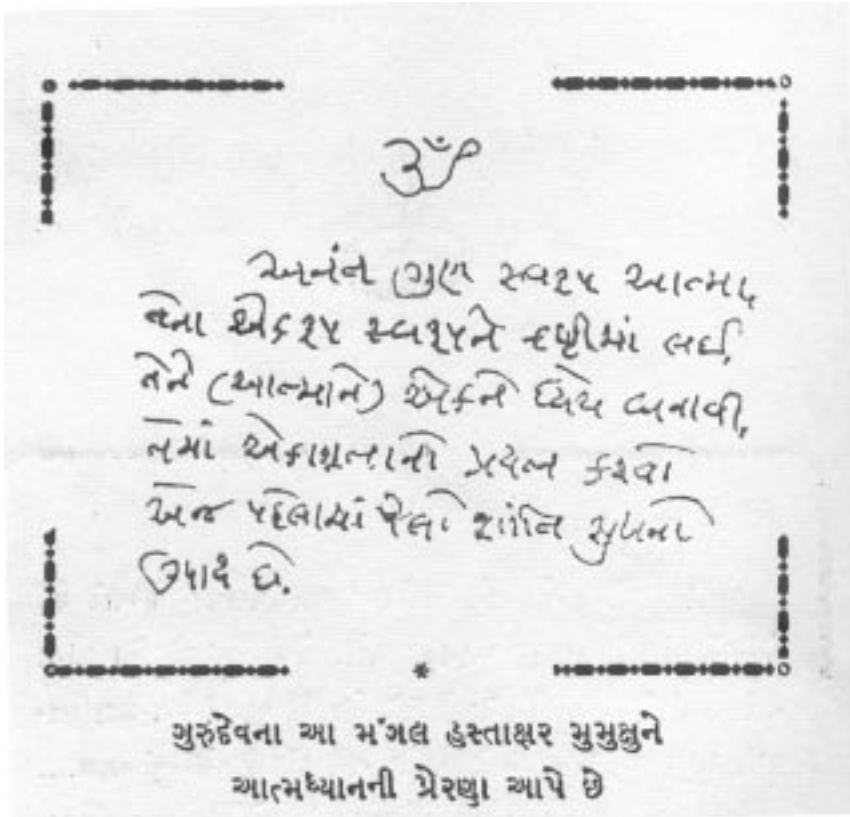 ૐ
અનંત ગુણ સ્વરૂપ આત્મા,
તેના એકરૂપ સ્વરૂપને દષ્ટીમાં લઈ,
તેને (આત્માને) એકને ધ્યેય બનાવી,
તેમાં એકાગ્રતાનો પ્રયત્ન કરવો
એજ પહેલામાં પેલો શાંતિ સુખનો
ઉપાય છે.
*
ગુરુદેવના આ મંગલ હસ્તાક્ષર મુમુક્ષુને
આત્મધ્યાનની પ્રેરણા આપે છે